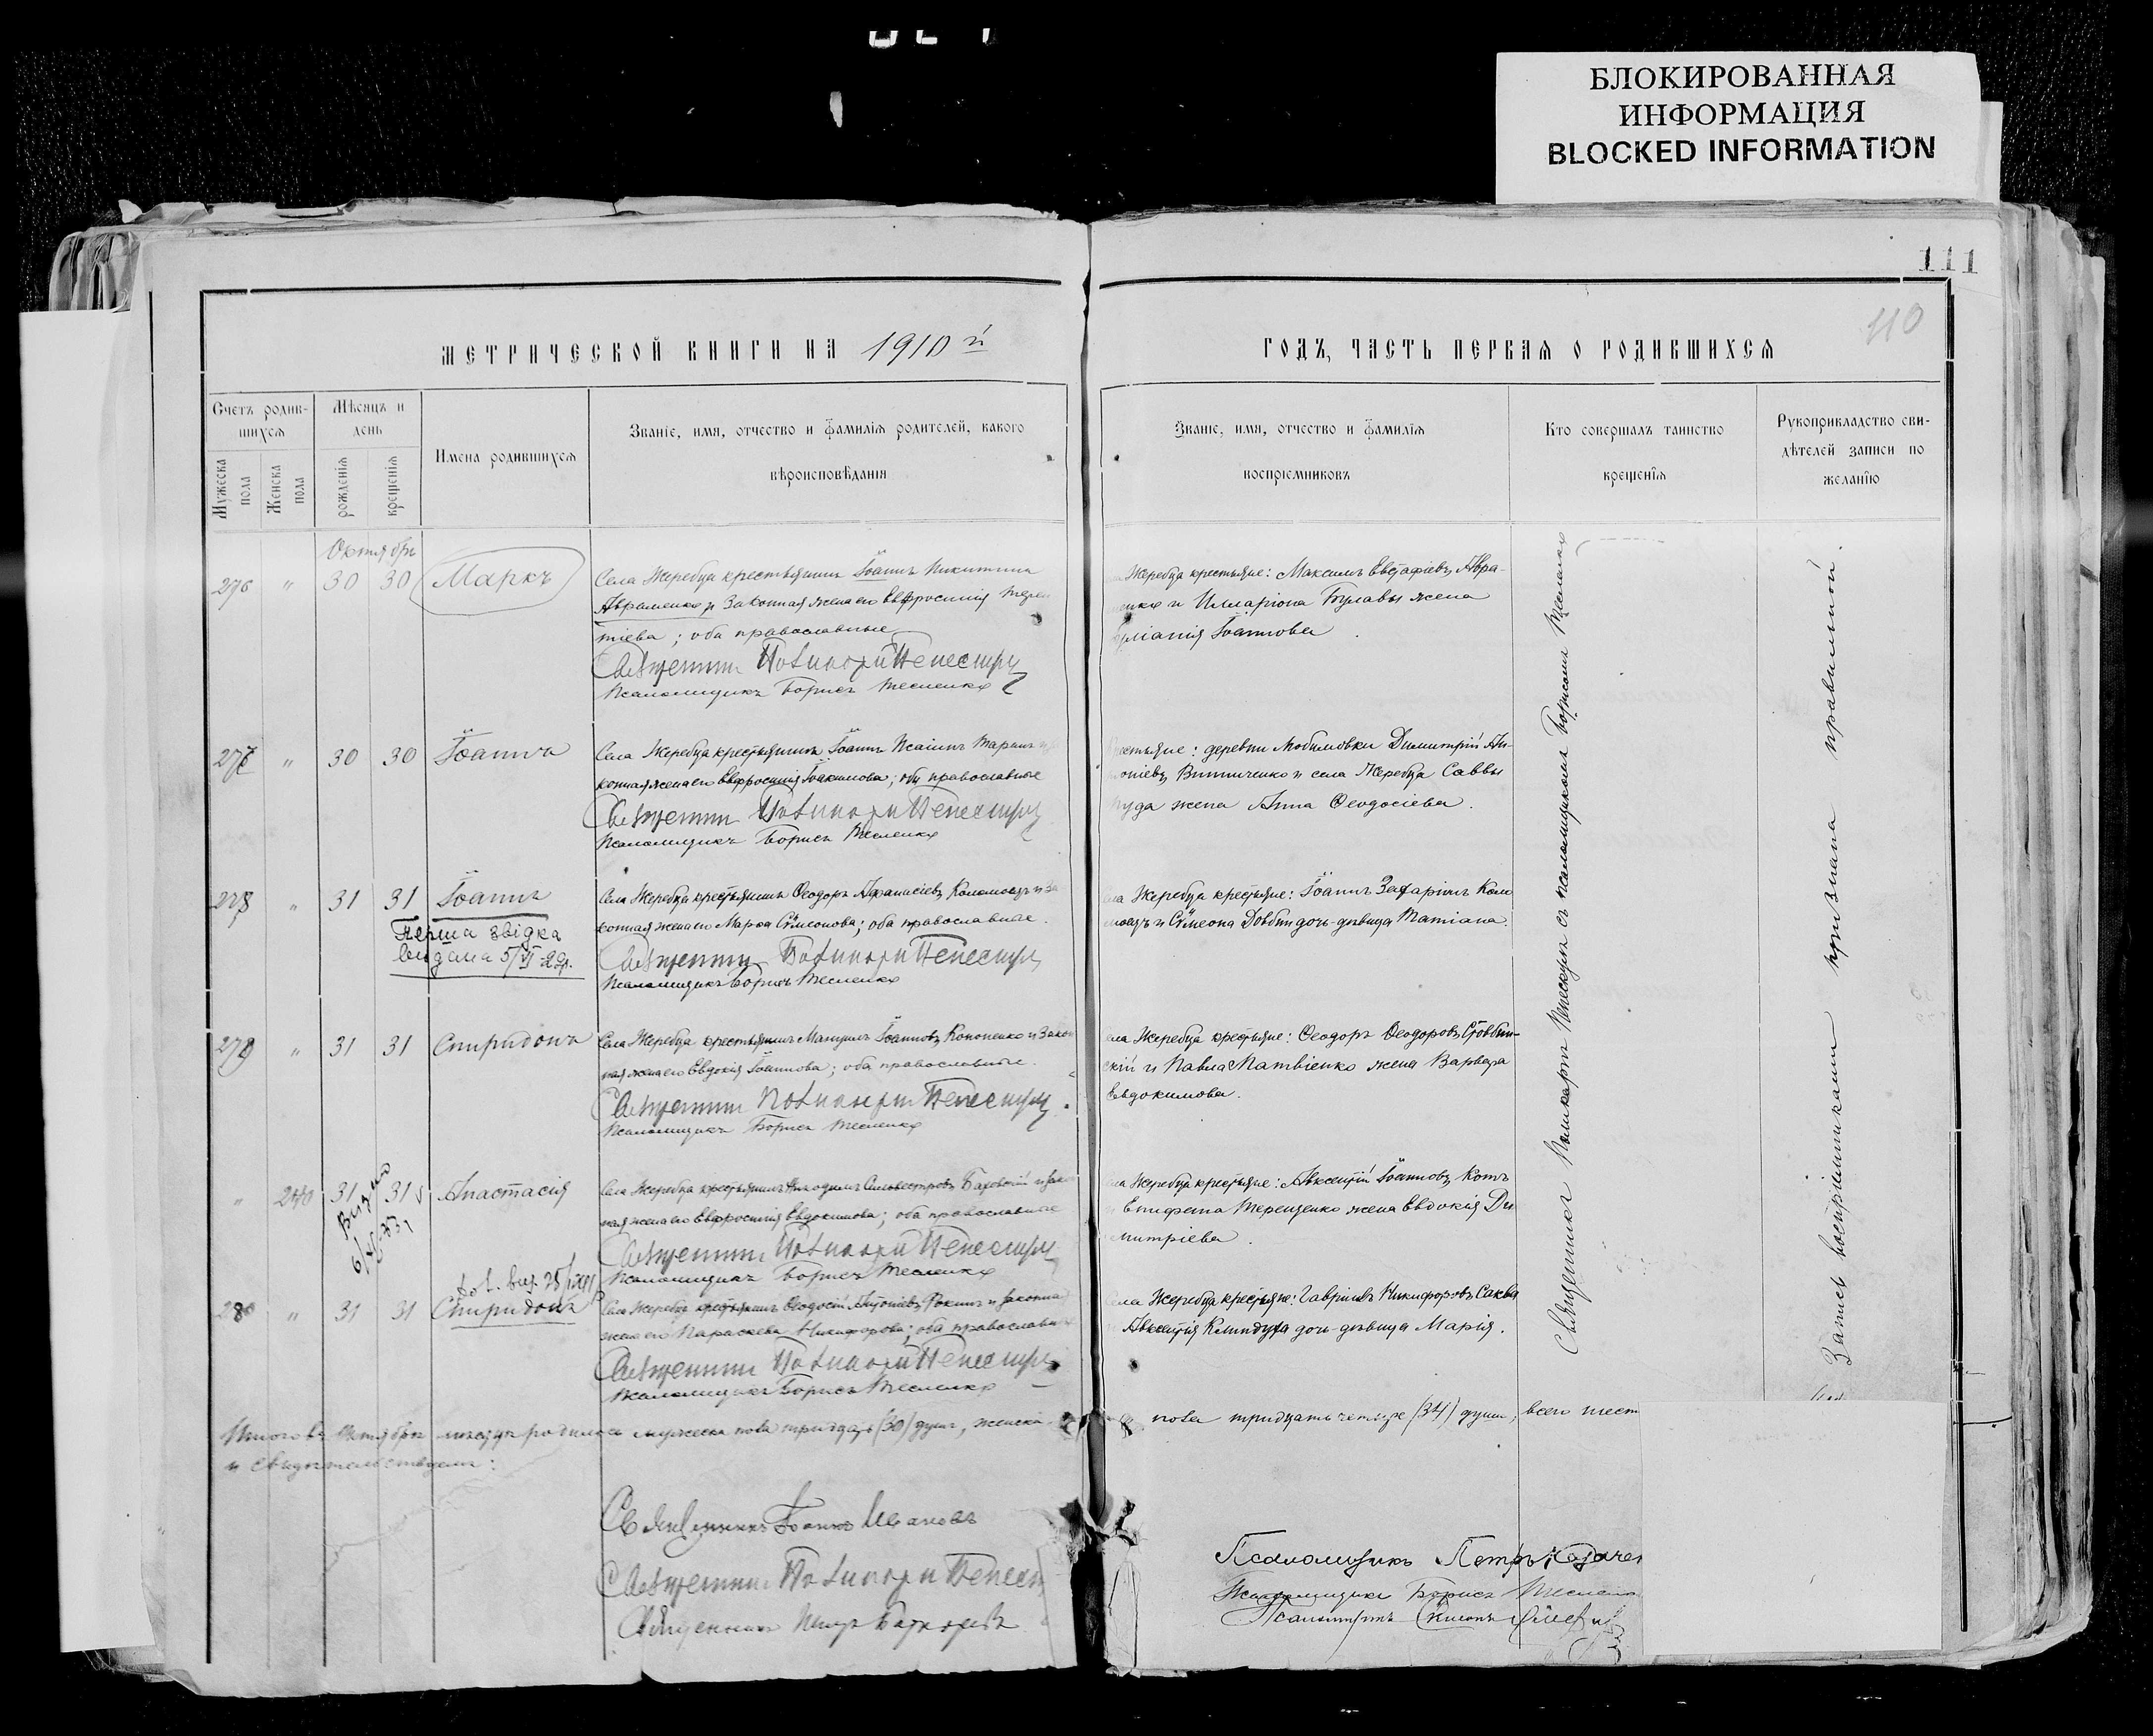 БЛОКИРОВАННАЯ
ИНФОРМАЦИЯ
BLOCKED INFORMATION
111
110
МЕТРИЧЕСКОЙ КНИГИ НА 1910й
ГОДЪ, ЧАСТЬ ПЕРВАЯ О РОДИВШИХСЯ
Счетъ родив-
шихся
Мужеска
пола
Женска
пола
Мѣсяцъ и
день
рожденія
крещенія
Имена родившихся
Званіе, имя, отчество и фамилія родителей, какого
вѣроисповѣданія
Званіе, имя, отчество и фамилія
воспріемниковъ
Кто совершалъ таинство
крещенія
Рукоприкладство сви-
дѣтелей записи по
желанію
Октябрь
276 " 30 30 Маркъ
Села Жеребца крестьянинъ Іоаннъ Никитинъ
Авраменко и законная жена его Евфросинія Терен
тіева; оба православные
Священникъ Поликарпъ
Псаломщикъ Борисъ Тесленко
Жеребца крестьяне: Максимъ Евстафіевъ Авра-
менко и Илларіона Булавы жена
Іоаннова
277 " 30 30 Іоаннъ
Села Жеребца крестьянинъ Іоаннъ Исаіинъ Таранъ и за
конная жена его Евфросинія Іоакимова; оба православные
Священникъ Поликарпъ
Псаломщикъ Борисъ Тесленко
крестьяне: деревни Любимовки Димитрій Ан-
тоніевъ Винниченко и села Жеребца Саввы
жена Анна Ѳеодосіева.
278 " 31 31 Іоаннъ
Перша звідка
видана 5/VI-29р.
Села Жеребца крестьянинъ Ѳеодоръ Афанасіевъ Коломоецъ и за
конная жена его Марѳа Сѵмеонова; оба православные.
Священникъ Поликарпъ
Псаломщикъ Борисъ Тесленко
села Жеребца крестьяне: Іоаннъ Захаріинъ Коло
моецъ и Сѵмеона Довбни дочь-дѣвица Татіана.
279 " 31 31 Спиридонъ
Села Жеребца крестьянинъ Мануилъ Іоанновъ Кононенко и закон
ная жена его Евдокія Іоаннова; оба православные.
Священникъ Поликарпъ
Псаломщикъ Борисъ Тесленко
села Жеребца крестьяне: Ѳеодоръ Ѳеодоровъ Стовбин-
скій и Павла Матвіенко жена Варвара
Евдокимова.
" 240 31 31 Анастасія
Видано
Села Жеребца крестьянинъ Никодимъ Сильвестровъ и закон
ная жена его Евфросинія Евдокимова; оба православные
Священникъ Поликарпъ
Псаломщикъ Борисъ Тесленко
села Жеребца крестьяне: Авксентій Іоанновъ Котъ
и Епифана Терещенко жена Евдокія Ди
митріева.
280 " 31 31 Спиридонъ
Села Жеребца крестьянинъ Ѳеодосій Антоніевъ Фокинъ и законная
жена его Параскева Никифорова; оба православные
Священникъ Поликарпъ
Псаломщикъ Борисъ Тесленко
села Жеребца крестьяне: Гавріилъ Никифоровъ Саква
Авксентія дочь-дѣвица Марія.
Священникъ Поликарпъ съ псаломщикомъ Борисомъ Тесленко
Запись воспріемниками признана правильной.
Итого въ Октябрѣ мѣсяцѣ родилось мужеска пола тридцать (30) душъ, женска
пола тридцать четыре (34) души, всего шест
и свидѣтельствуемъ:
Священникъ Іоаннъ Ивановъ
Священникъ Поликарпъ
Священникъ Петръ
Псаломщикъ Петръ
Псаломщикъ Борисъ Тесленко
Псаломщикъ